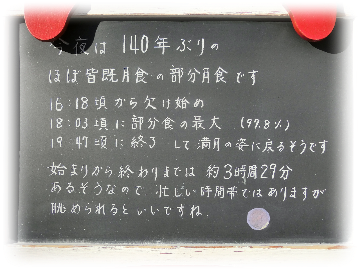 今夜は 140年ぶりの
ほぼ皆既月食の部分月食です
16:18頃から欠け始め
18:03頃に部分食の最大 (97.8%)
19:47頃に終了 して満月の姿に戻るそうです
始まりから終わりまでは 約3時間29分
あるそうなので 忙しい時間帯ではありますが
眺められると いいですね.